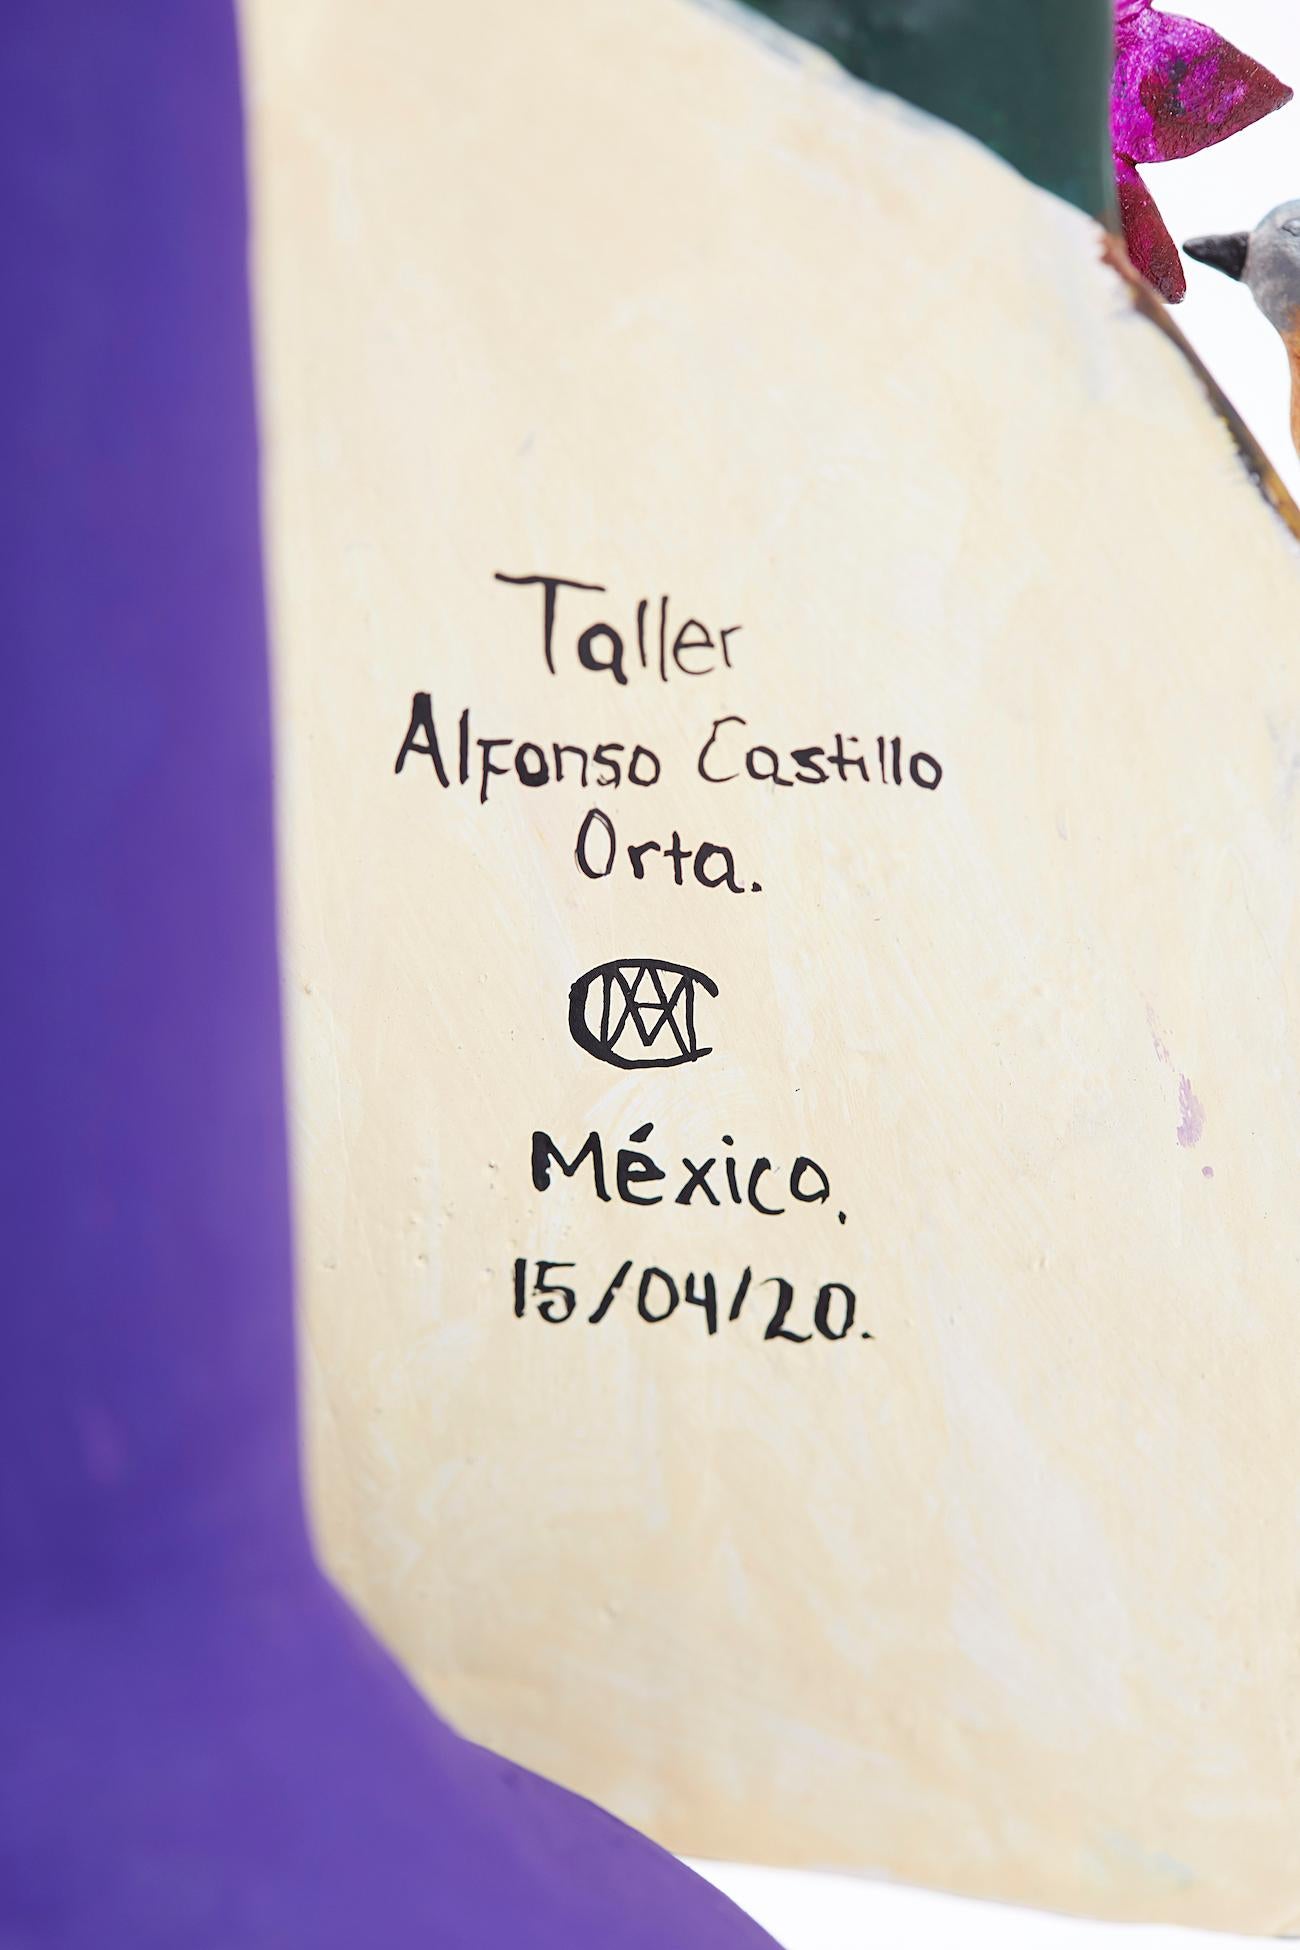 Taller
Alfonso Castillo
Orta.
México.
15/04/20.